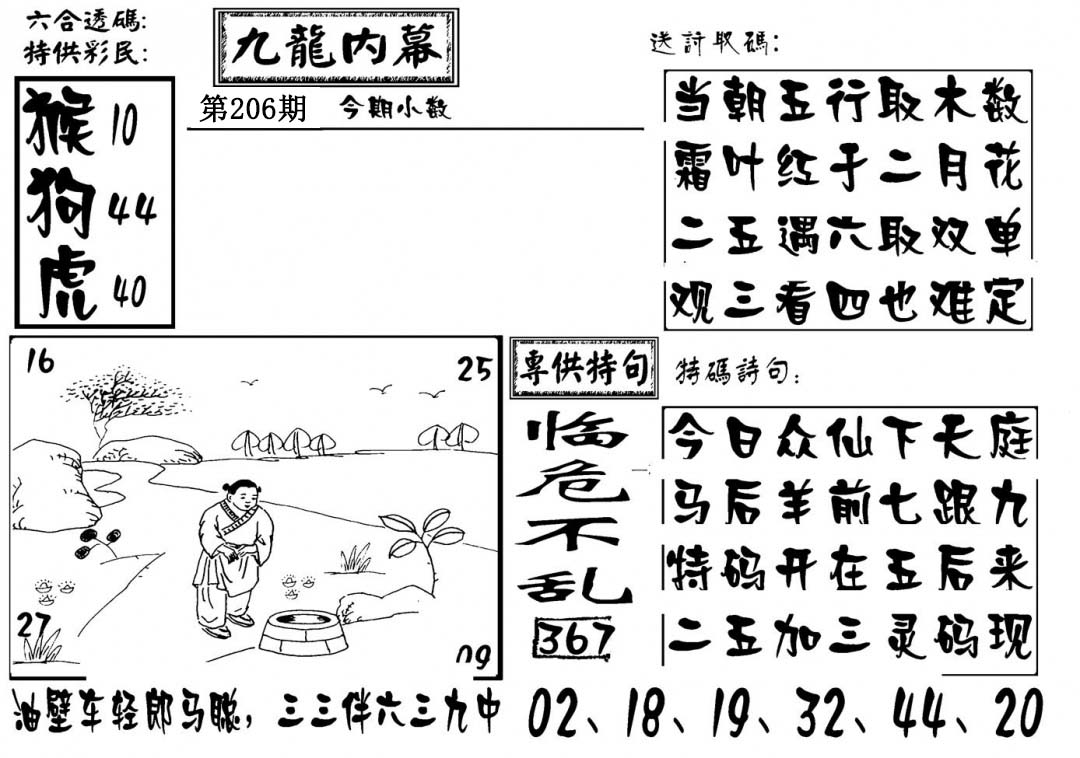 六合透碼:
特供彩民:
猴 10
狗 44
虎 40
九龍内幕
第206期 今期小数
送討取碼:
当朝五行取木数
霜叶红于二月花
二五遇六取双单
观三看四也难定
16
25
27
09
專供特句
临危不乱
367
特碼詩句:
今日众仙下天庭
马后羊前七跟九
特码开在五后来
二五加三灵码现
油壁车轻郎马骢，三三伴六三九中
02、18、19、32、44、20